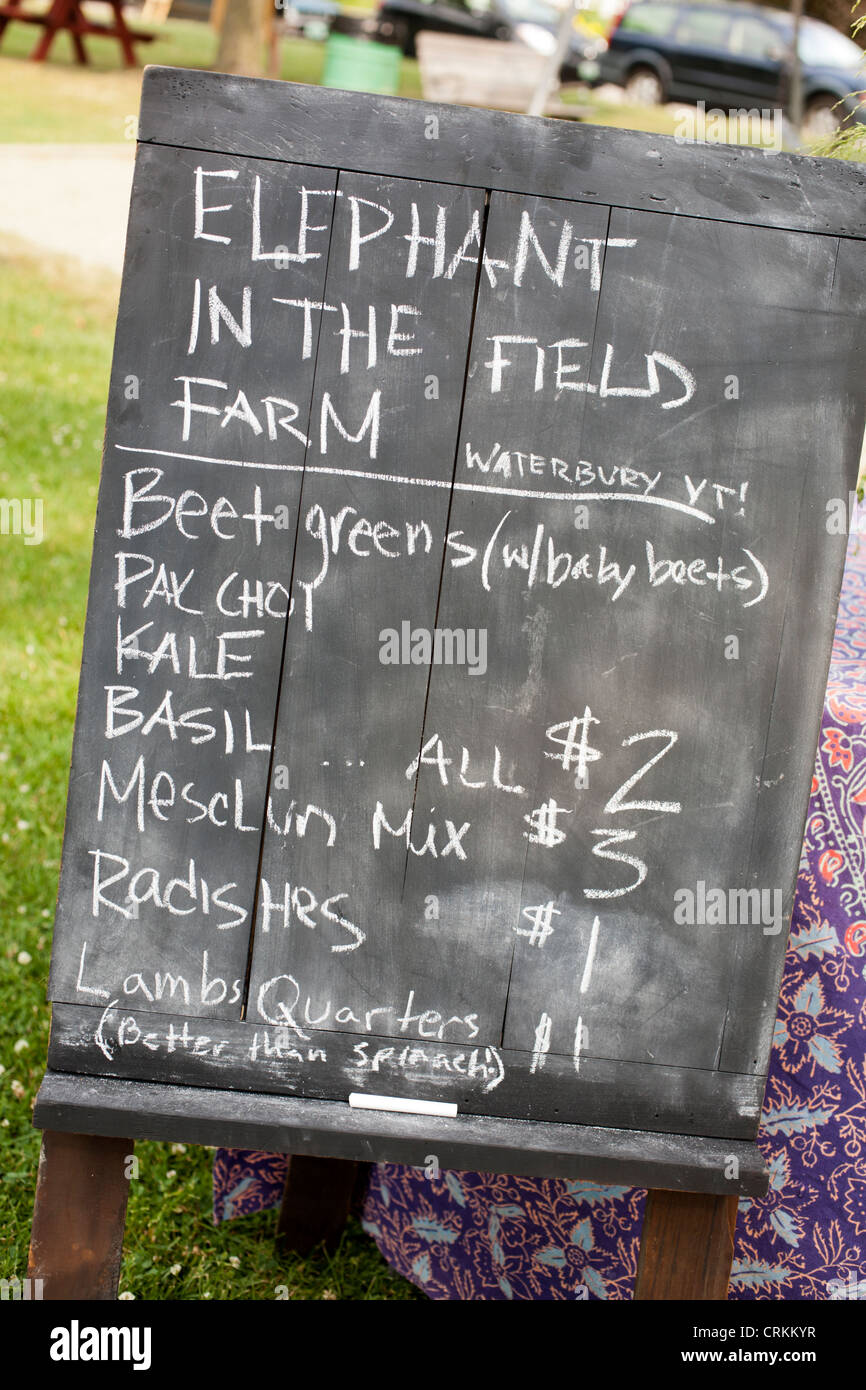 ELEPHANT
IN THE FIELD
FARM WATERBURY VT!
Beet greens (w/baby beets)
PAK CHOY
KALE
BASIL ... ALL $2
MescLun Mix $3
RadisHes $1
Lambs Quarters $1
(Better than Spinach!)
alamy
Image ID: CRKKYR
www.alamy.com